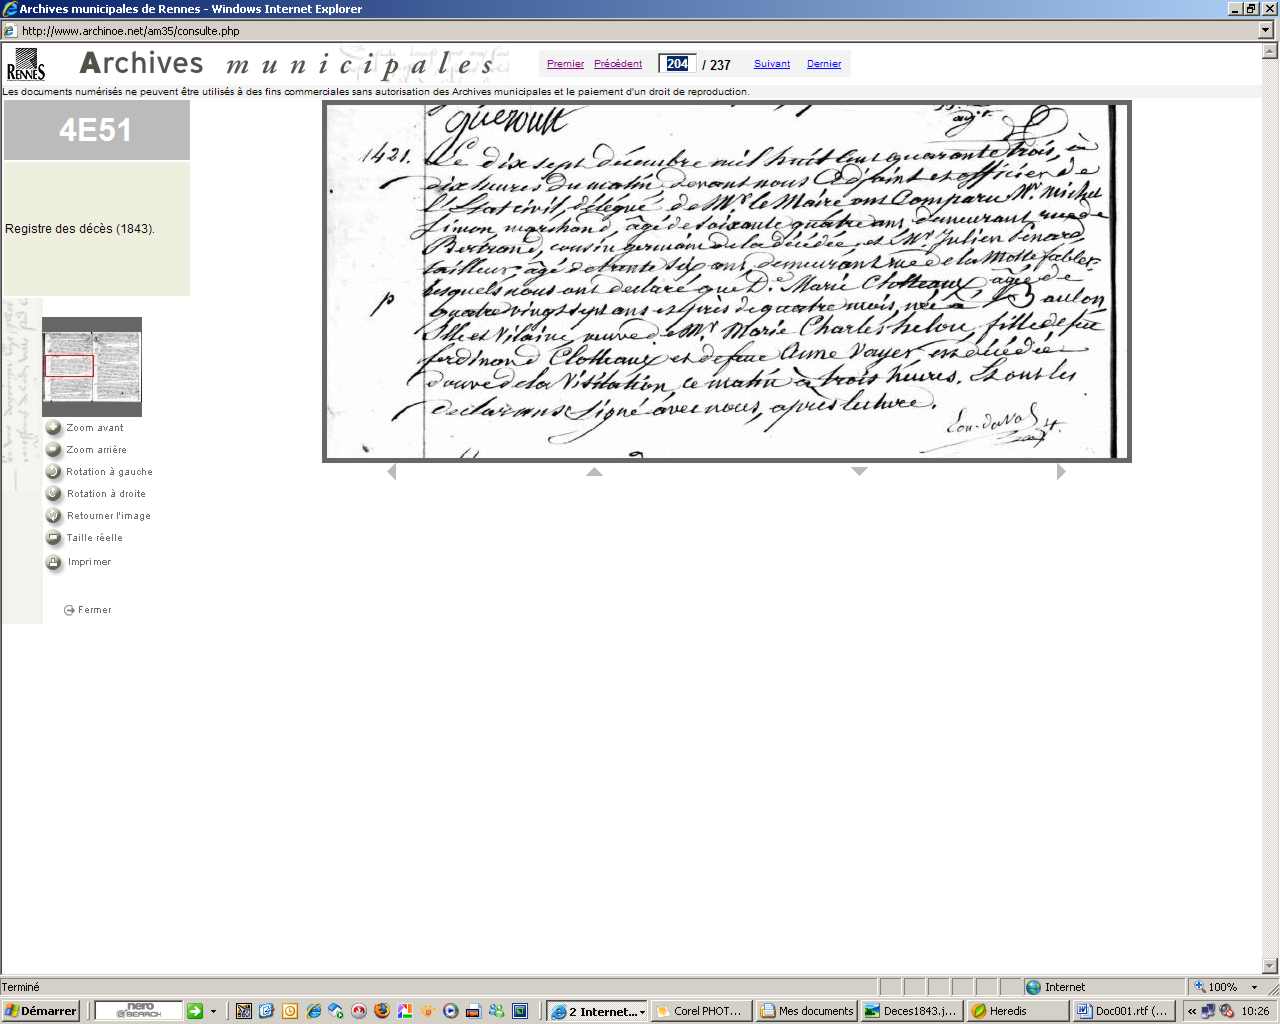 Archives municipales de Rennes - Windows Internet Explorer
http://www.archinoe.net/am35/consulte.php
RENNES
Archives municipales
Premier Précédent 204 / 237 Suivant Dernier
Les documents numérisés ne peuvent être utilisés à des fins commerciales sans autorisation des Archives municipales et le paiement d'un droit de reproduction.
4E51
Registre des décès (1843).
Zoom avant
Zoom arrière
Rotation à gauche
Rotation à droite
Retourner l'image
Taille réelle
Imprimer
Fermer
gueroult
1421. Le dix sept décembre mil huit cent quarante trois, à
dix heures du matin, devant nous adjoint et officier de
l'Etat civil, délégué de Mr le Maire ont Comparu Mr. Michel
Simon marchand, âgé de soixante quatre ans, demeurant rue de
Bertrand, cousin germain de la décédée, et Mr. Julien
tailleur, âgé de trente six ans, demeurant rue de la Motte fablet
lesquels nous ont déclaré que De Marie Clotteaux âgée de
p quatre vingt sept ans et près de quatre mois, née à
Ille et Vilaine, veuve de Mr Marie Charles helou, fille de feu
ferdinand Clotteaux et de feue Anne Vayer, est décédée
de la Visitation, ce matin à trois heures. Et ont les
déclarans signé avec nous, après lecture.
Terminé
Internet
100%
Démarrer
nero
SEARCH
2 Internet...
Corel PHOT...
Mes documents
Deces1843.j...
Heredis
Doc001.rtf (...
10:26